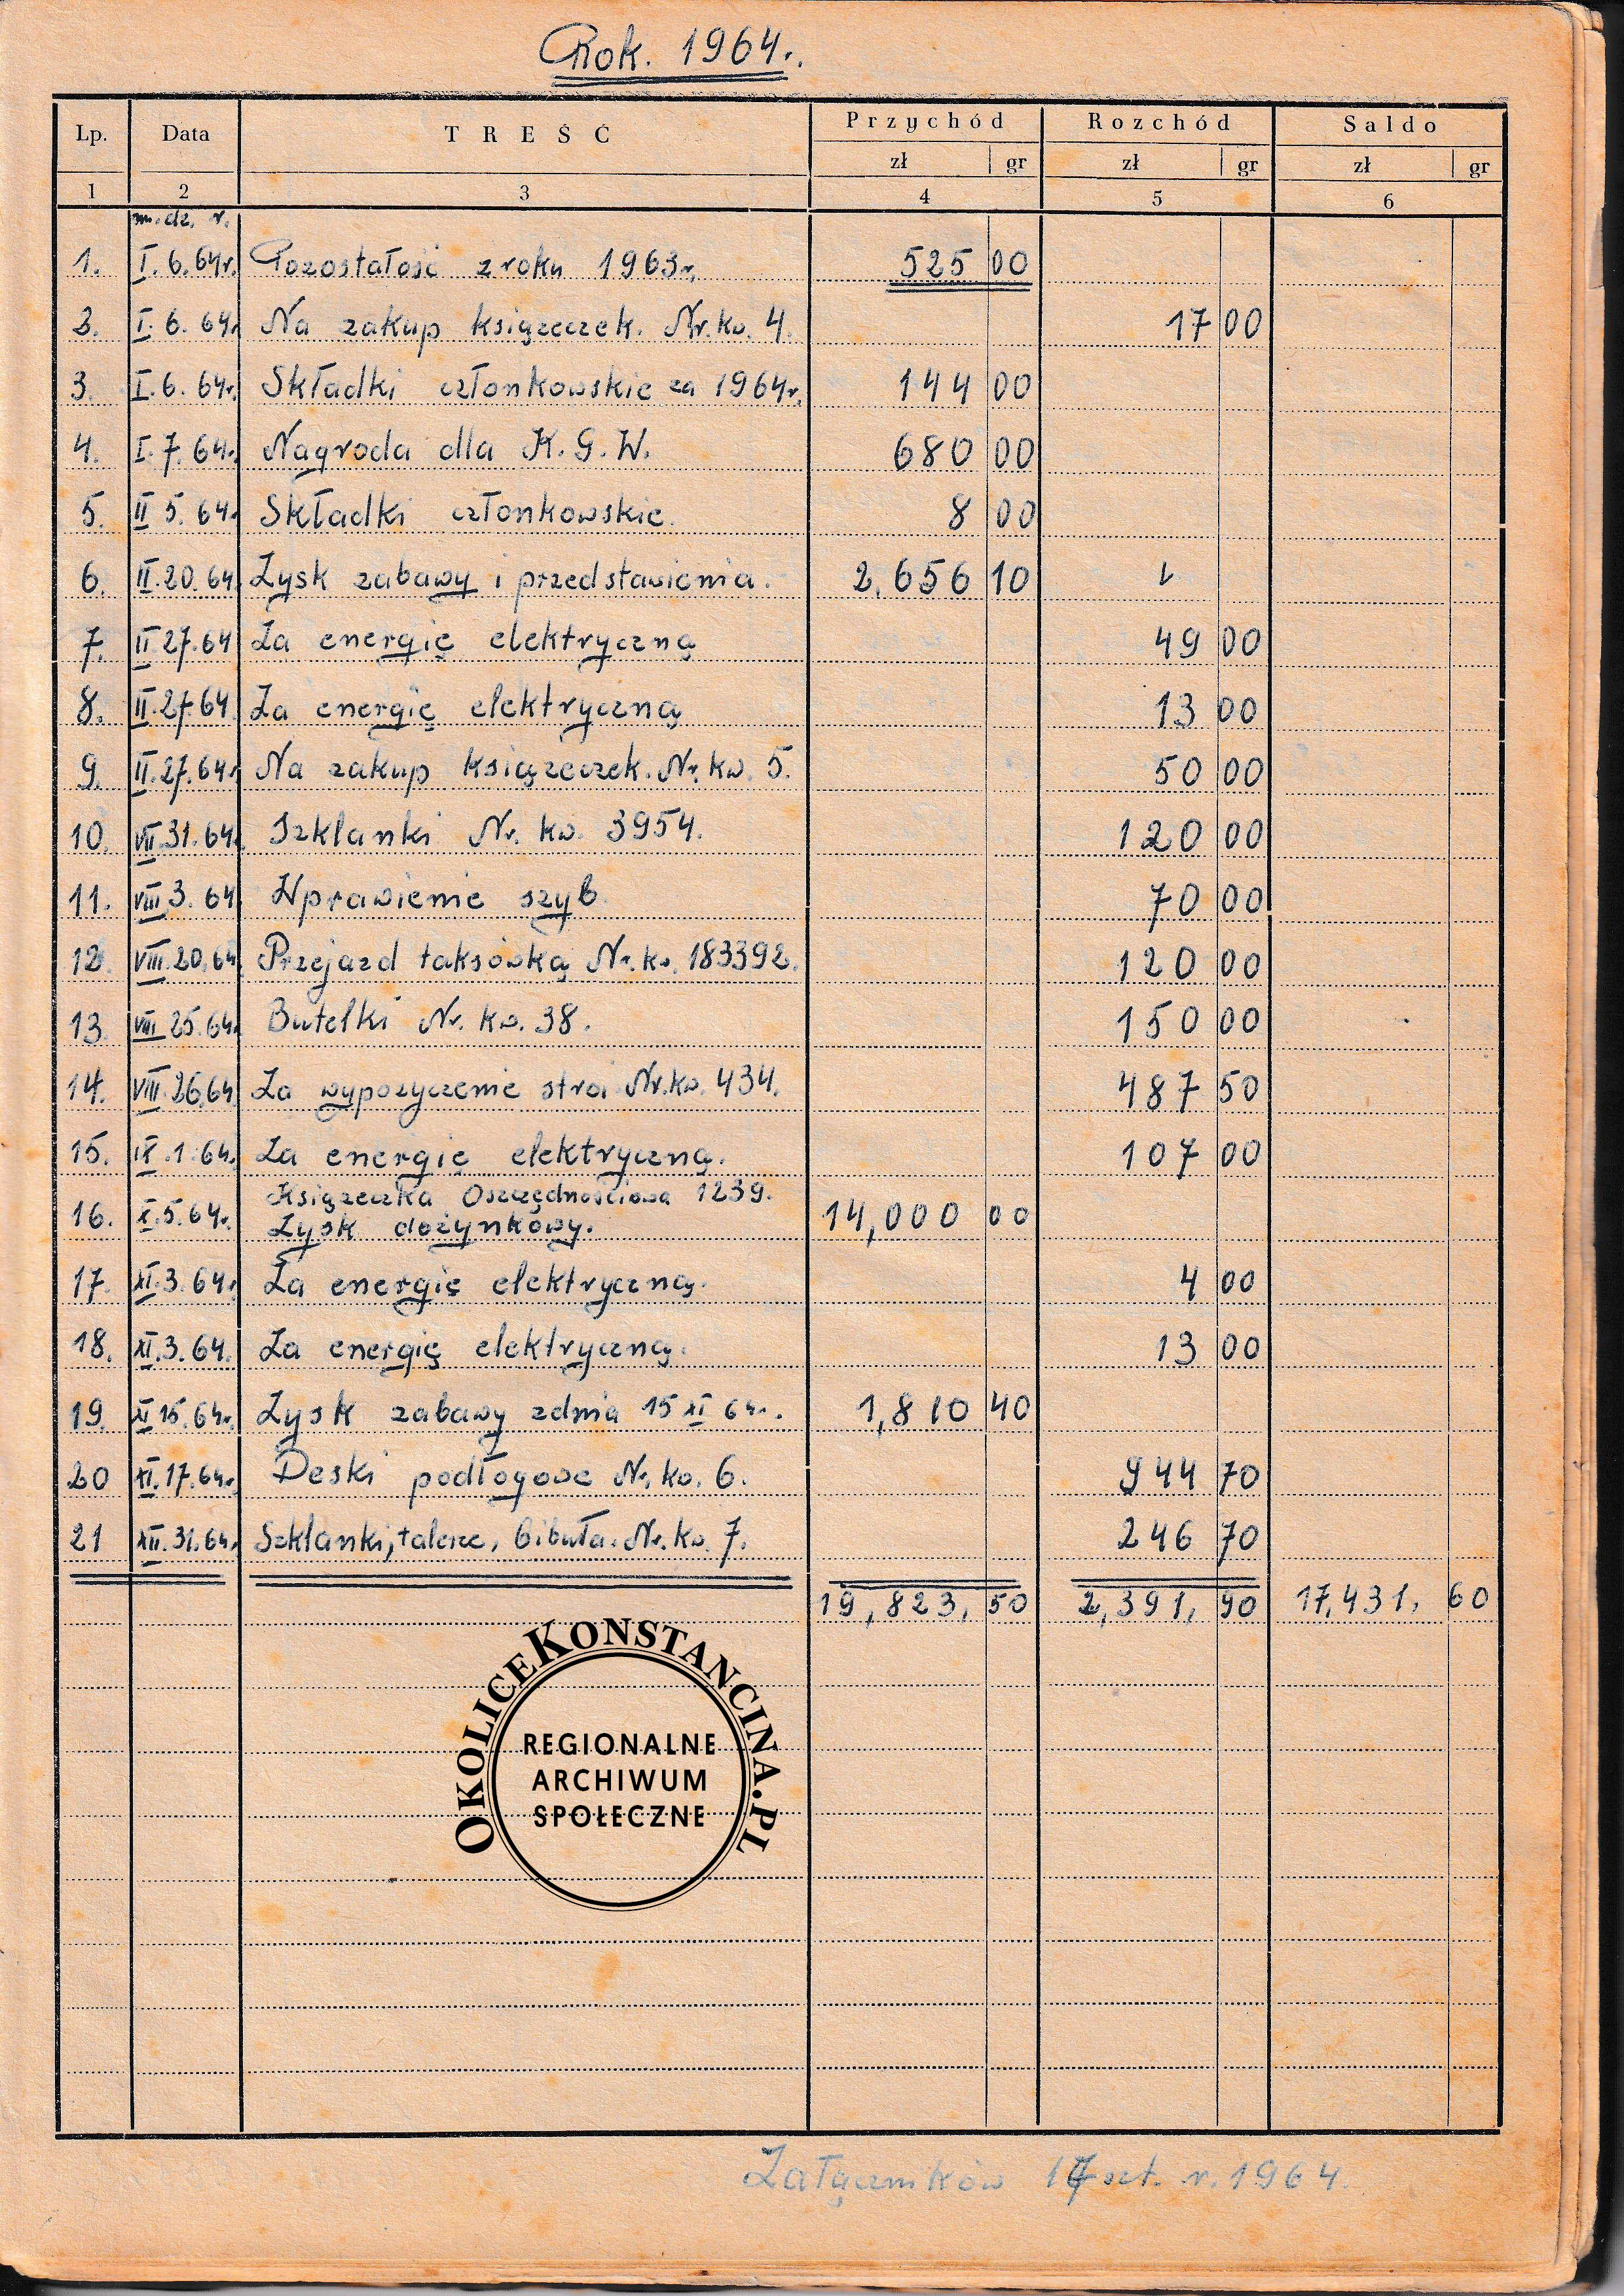 Rok. 1964r.
Lp. Data TREŚĆ Przychód Rozchód Saldo
zł gr zł gr zł gr
1 2 3 4 5 6
m. dz. r.
1. I. 6. 64r. Pozostałość z roku 1963r. 525 00
2. I. 6. 64r Na zakup książeczek. Nr. kw. 4. 17 00
3. I. 6. 64r. Składki członkowskie za 1964r. 144 00
4. I. 7. 64r. Nagroda dla K. G. W. 680 00
5. II 5. 64r Składki członkowskie. 8 00
6. II. 20. 64. Zysk zabawy i przedstawienia. 2.656 10
7. II 27. 64 Za energię elektryczną 49 00
8. II. 27. 64 Za energię elektryczną 13 00
9. II. 27. 64r Na zakup książeczek. Nr. kw. 5. 50 00
10. VII. 31. 64r. Szklanki Nr. kw. 3954. 120 00
11. VIII 3. 64 Wprawienie szyb 70 00
12. VIII. 20. 64 Przejazd taksówką Nr. kw. 183392. 120 00
13. VIII 25. 64r. Butelki Nr. kw. 38. 150 00
14. VIII 26. 64. Za wypożyczenie stroi Nr. kw. 434. 487 50
15. IX. 1. 64. Za energię elektryczną. 107 00
Książeczka Oszczędnościowa 1239.
16. X. 5. 64r. Zysk dożynkowy. 14,000 00
17. XI. 3. 64r Za energię elektryczną. 4 00
18. XI. 3. 64. Za energię elektryczną. 13 00
19. XI 15. 64r. Zysk zabawy z dnia 15 XI 64r. 1,810 40
20 XI. 17. 64r. Deski podłogowe Nr. kw. 6. 944 70
21 XII. 31. 64r. Szklanki, talerze, bibuła. Nr. kw. 7. 246 70
19,823, 50 2,391, 90 17,431, 60
OKOLICEKONSTANCINA.PL
REGIONALNE
ARCHIWUM
SPOŁECZNE
Załączników szt. r. 1964.